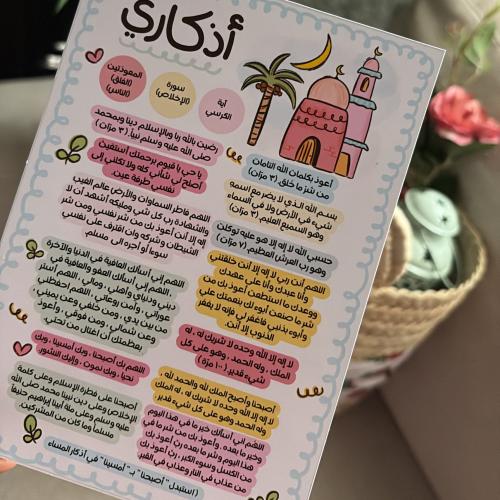 أذكاري
آية
الكرسي
سورة
(الإخلاص)
المعوذتين
(الفلق)
(الناس)
أعوذ بكلمات الله التامات
من شر ما خلق (٣ مرات)
بسم الله الذي لا يضر مع اسمه
شيء في الأرض ولا في السماء
وهو السميع العليم (٣ مرات)
حسبي الله لا إله إلا هو عليه توكلت
وهو رب العرش العظيم (٧ مرات)
اللهم أنت ربي لا إله إلا أنت خلقتني
وأنا عبدك وأنا على عهدك
ووعدك ما استطعت أعوذ بك من
شر ما صنعت أبوء لك بنعمتك علي
وأبوء بذنبي فاغفر لي فإنه لا يغفر
الذنوب إلا أنت.
لا إله إلا الله وحده لا شريك له ، له
الملك ، وله الحمد ، وهو على كل
شيء قدير (١٠٠ مرة)
أصبحنا وأصبح الملك لله والحمد لله ،
لا إله إلا الله وحده لا شريك له ، له الملك
وله الحمد وهو على كل شيء قدير .
اللهم إني أسألك خير ما في هذا اليوم
وخير ما بعده ، وأعوذ بك من شر ما في
هذا اليوم وشر ما بعده رب أعوذ بك
من الكسل وسوء الكبر ، رب أعوذ بك
من عذاب في النار وعذاب في القبر
رضيت بالله ربا وبالإسلام دينا وبمحمد
صلى الله عليه وسلم نبياً. (٣ مرات)
يا حي يا قيوم برحمتك أستغيث
أصلح لي شأني كله ولا تكلني إلى
نفسي طرفة عين.
اللهم فاطر السماوات والأرض عالم الغيب
والشهادة رب كل شيء ومليكه أشهد أن لا
إله إلا أنت أعوذ بك من شر نفسي ومن شر
الشيطان وشركه وأن اقترف على نفسي
سوءا أو أجره إلى مسلم
اللهم إني أسألك العافية في الدنيا والآخرة
اللهم إني أسألك العفو والعافية في
ديني ودنياي وأهلي ، ومالي ، اللهم استر
عوراتي ، وآمن روعاتي ، اللهم احفظني
من بين يدي ، ومن خلفي وعن يميني
وعن شمالي ، ومن فوقي ، وأعوذ
بعظمتك أن أغتال من تحتي.
اللهم بك أصبحنا ، وبك أمسينا ، وبك
نحيا ، وبك نموت ، وإليك النشور.
أصبحنا على فطرة الإسلام وعلى كلمة
الإخلاص وعلى دين نبينا محمد صلى الله
عليه وسلم وعلى ملة أبينا إبراهيم حنيفاً
مسلماً وما كان من المشركين.
(استبدل "أصبحنا" بـ "أمسينا" في أذكار المساء